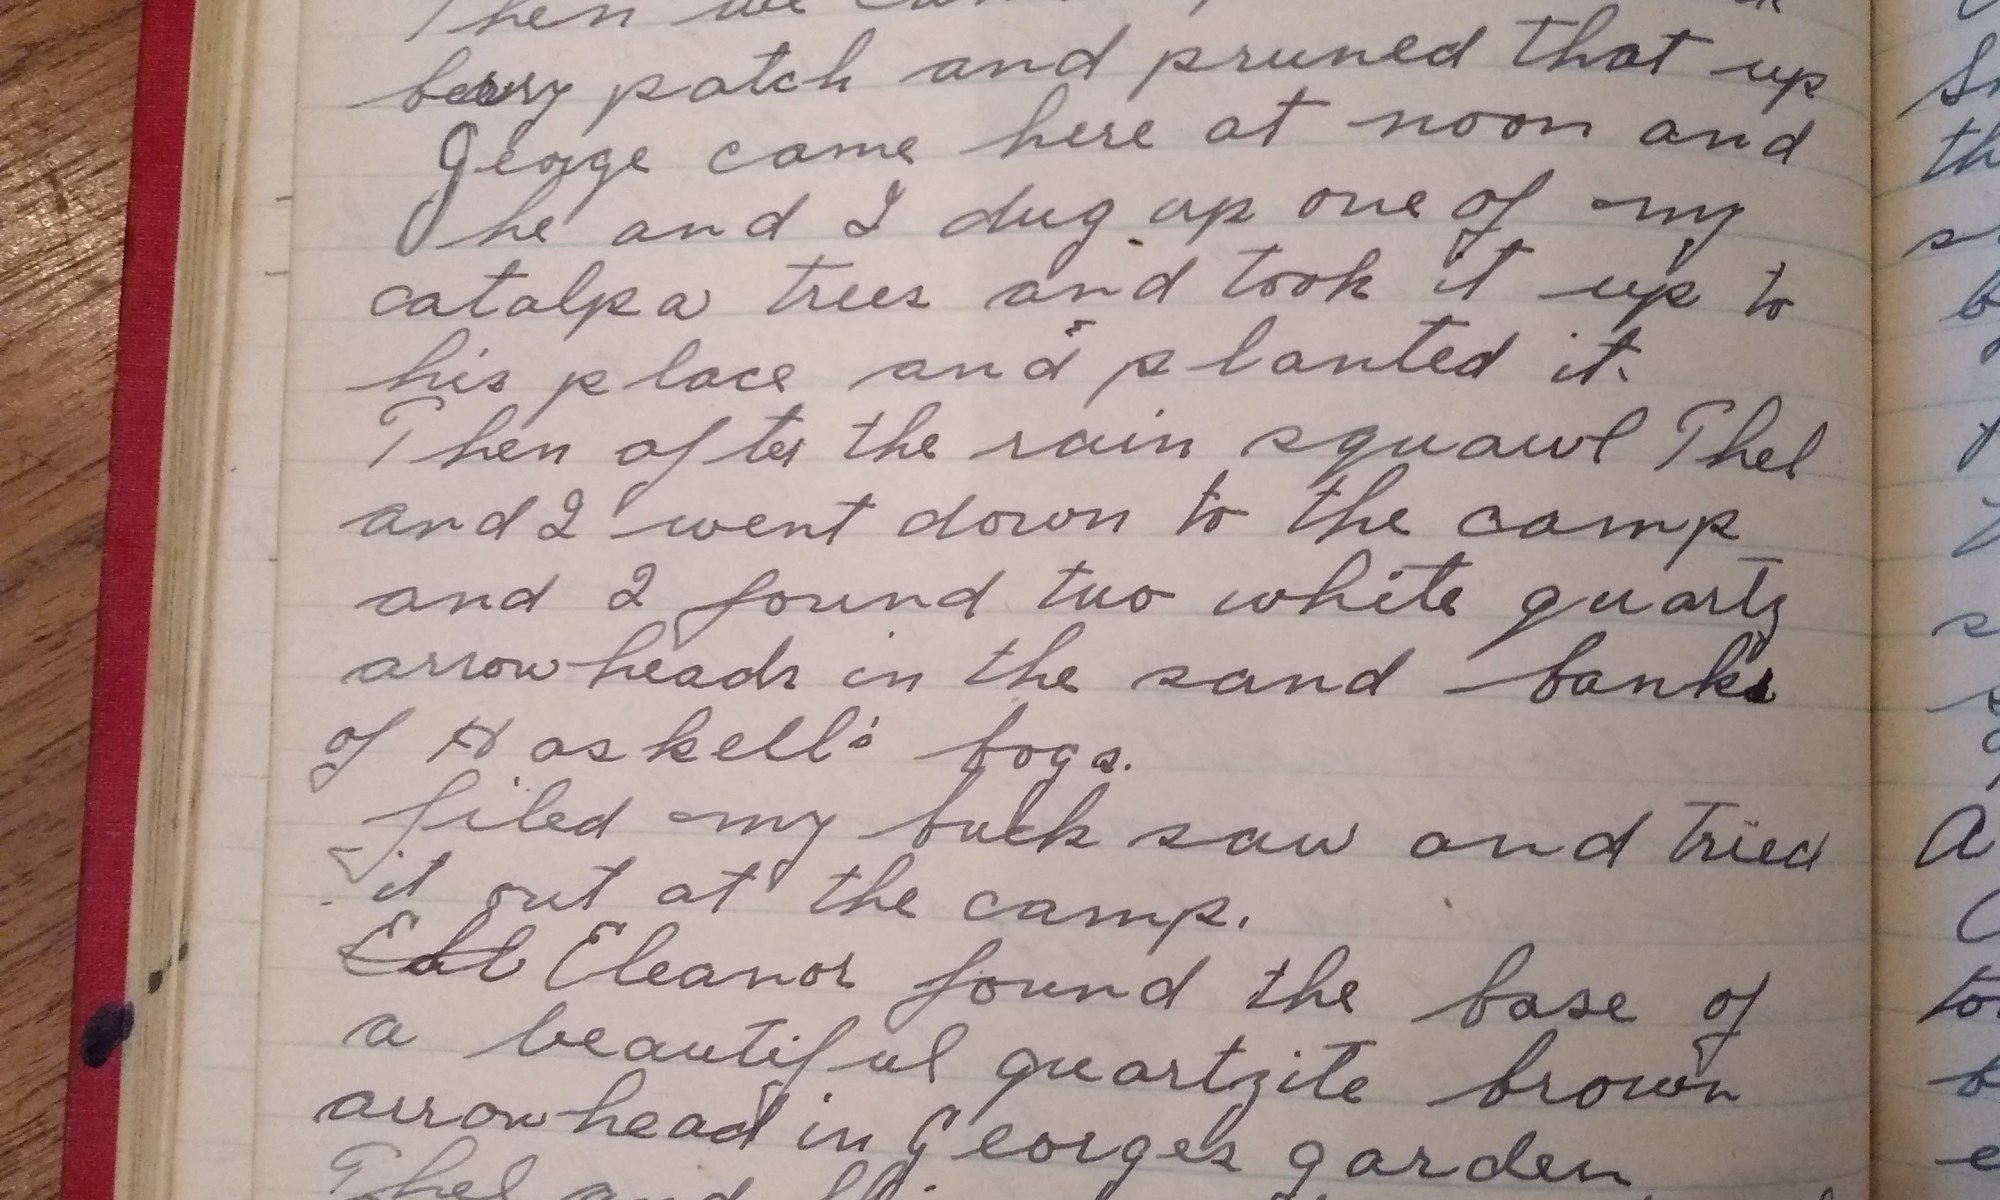 Then we
berry patch and pruned that up
George came here at noon and
he and I dug up one of my
catalpa trees and took it up to
his place and planted it.
Then after the rain squawl Thel
and I went down to the camp
and I found two white quartz
arrowheads in the sand banks
of Haskell's bogs.
filed my buck saw and tried
it out at the camp.
Eleanor found the base of
a beautiful quartzite brown
arrowhead in Georges garden
Thel and